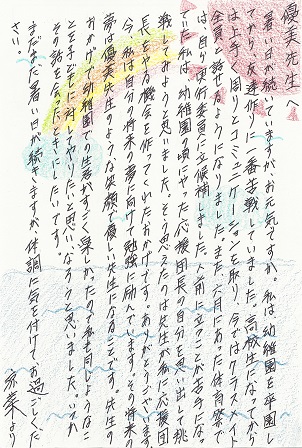 優美先生へ
暑い日が続いていますが、お元気ですか。私は幼稚園を卒園し
てから、友達作りに一番苦戦していました。高校生になってから
は上手く周りとコミュニケーションを取り、今ではクラスメイト
全員と話せるようになりました。また、六月にあった体育祭で
は、自ら実行委員に立候補しました。人前に立つことが苦手になっ
ていた私は、幼稚園の頃にやった応援団長の自分を思い出して挑
戦してみようと思いました。そう思えたのは先生が私に応援団
長をやる機会を作ってくれたおかげです。ありがとうございます。
今、私は自分の将来の夢に向けて勉強に励んでいます。その将来の
夢は優美先生のような笑顔で優しい先生になることです。先生の
おかげで幼稚園での生活がすごく楽しかったので私も同じようなこ
とを子どもに対してやりたいと思い、なろうと思いました。いつか
その話を会ってしたいです。
まだまだ暑い日が続きますが、体調に気を付けてお過ごしくだ
さい。
より